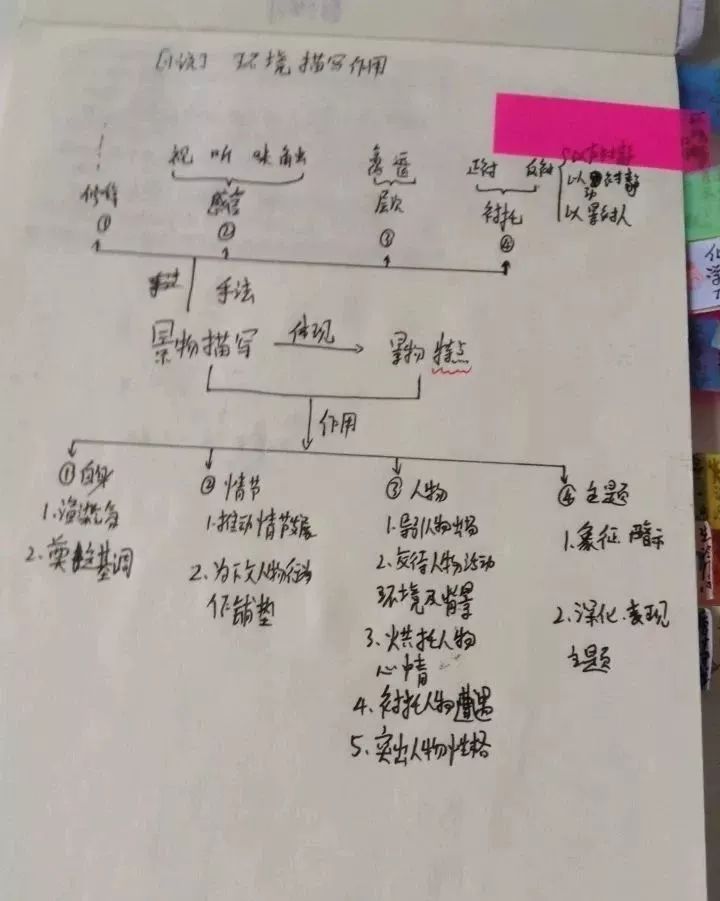 [小说] 环境描写作用
视 听 味 触
高 低
正衬 反衬
以动衬静
以景衬人
修辞
感官
层次
衬托
① ② ③ ④
手法
景物描写 体现 景物特点
作用
①自身
1.渲染气氛
2.奠定基调
②情节
1.推动情节发展
2.为下文人物行动
作铺垫
③人物
1.导引人物出场
2.交待人物活动
环境及背景
3.烘托人物
心情
4.衬托人物遭遇
5.突出人物性格
④主题
1.象征.暗示
2.深化.表现
主题